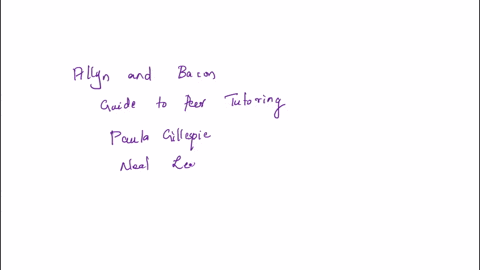 Allyn and Bacon
Guide to Peer Tutoring
Paula Gillespie
Neal Le